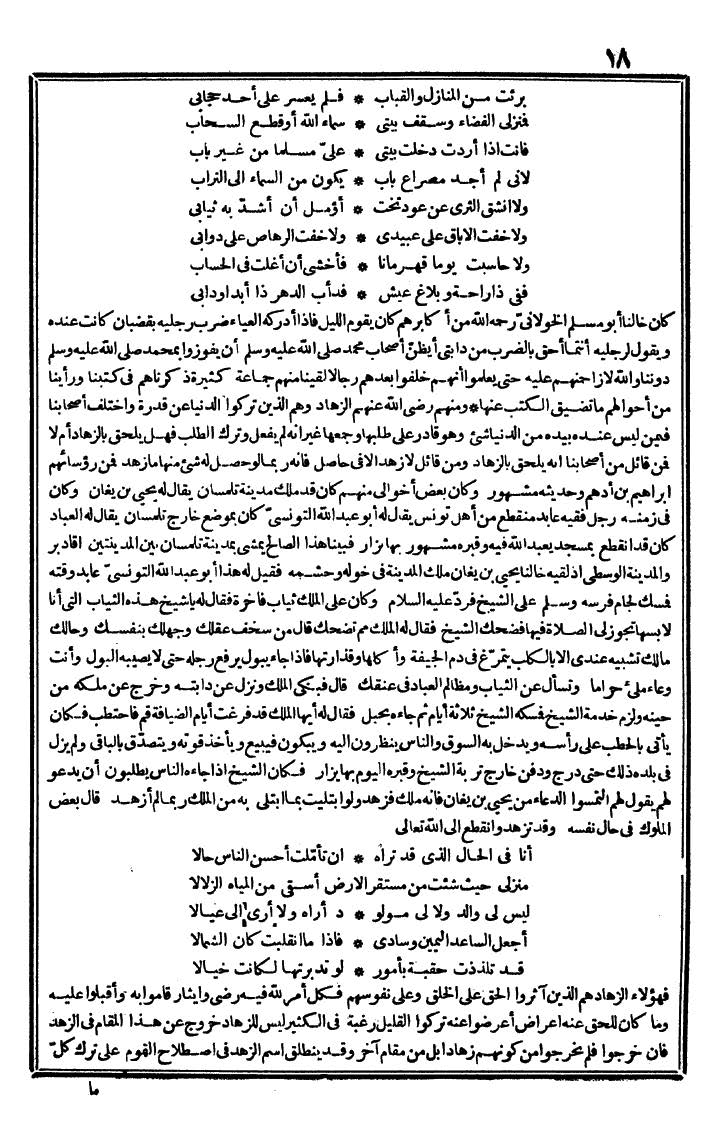 ١٨
برئت من المنازل والقباب * فلم يعسر على أحد حجابى
فمنزلى الفضاء وسقف بيتى * سماء الله أو قطع السحاب
فانت اذا أردت دخلت بيتى * علىّ مسلما من غير باب
لانى لم أجد مصراع باب * يكون من السماء الى التراب
ولا انشق الثرى عن عود تخت * أؤمل أن أشدّ به ثيابى
ولا خفت الاباق على عبيدى * ولا خفت الرهاص على دوابى
ولا حاسبت يوما قهرمانا * فأخشى أن أغلت فى الحساب
ففى ذا راحة وبلاغ عيش * فدأب الدهر ذا أبدا ودابى
كان خالنا أبو مسلم الخولانى رحمه الله من أكابرهم كان يقوم الليل فاذا أدركه العياء ضرب رجليه بقضبان كانت عنده
ويقول لرجليه أنتما أحق بالضرب من دابتى أيظنّ أصحاب محمد صلى الله عليه وسلم أن يفوزوا بمحمد صلى الله عليه وسلم
دوننا والله لازاحمنهم عليه حتى يعلموا أنهم خلفوا بعدهم رجالا لقينا منهم جماعة كثيرة ذكرناهم فى كتبنا ورأينا
من أحوالهم ما تضيق الكتب عنها * ومنهم رضى الله عنهم الزهاد وهم الذين تركوا الدنيا عن قدرة واختلف أصحابنا
فيمن ليس عنده بيده من الدنيا شئ وهو قادر على طلبها وجمعها غير انه لم يفعل وترك الطلب فهل يلحق بالزهاد أم لا
فمن قائل من أصحابنا انه يلحق بالزهاد ومن قائل لا زهد الا فى حاصل فانه ربما لو حصل له شئ منها ما زهد فمن رؤسائهم
ابراهيم بن أدهم وحديثه مشهور وكان بعض أخوالى منهم كان قد ملك مدينة تلمسان يقال له يحيى بن يغان وكان
فى زمنه رجل فقيه عابد منقطع من أهل تونس يقال له أبو عبد الله التونسىّ كان بموضع خارج تلمسان يقال له العباد
كان قد انقطع بمسجد يعبد الله فيه وقبره مشهور بها يزار فبينا هذا الصالح يمشى بمدينة تلمسان بين المدينتين اقادير
والمدينة الوسطى اذ لقيه خالنا يحيى بن يغان ملك المدينة فى خوله وحشمه فقيل له هذا أبو عبد الله التونسىّ عابد وقته
فمسك لجام فرسه وسلم على الشيخ فردّ عليه السلام وكان على الملك ثياب فاخرة فقال له يا شيخ هذه الثياب التى أنا
لابسها تجوز لى الصلاة فيها فضحك الشيخ فقال له الملك مم تضحك قال من سخف عقلك وجهلك بنفسك وحالك
مالك تشبيه عندى الا بالكلب يتمرّغ فى دم الجيفة وأكلها وقذارتها فاذا جاء يبول يرفع رجله حتى لا يصيبه البول وأنت
وعاء ملئ حراما وتسأل عن الثياب ومظالم العباد فى عنقك قال فبكى الملك ونزل عن دابته وخرج عن ملكه من
حينه ولزم خدمة الشيخ فمسكه الشيخ ثلاثة أيام ثم جاءه بحبل فقال له أيها الملك قد فرغت أيام الضيافة قم فاحتطب فكان
يأتى بالحطب على رأسه ويدخل به السوق والناس ينظرون اليه ويبكون فيبيع ويأخذ قوته ويتصدّق بالباقى ولم يزل
فى بلده ذلك حتى درج ودفن خارج تربة الشيخ وقبره اليوم بها يزار فكان الشيخ اذا جاءه الناس يطلبون أن يدعو
لهم يقول لهم التمسوا الدعاء من يحيى بن يغان فانه ملك فزهد ولو ابتليت بما ابتلى به من الملك ربما لم أزهد قال بعض
الملوك فى حال نفسه وقد تزهد وانقطع الى الله تعالى
أنا فى الحال الذى قد تراه * ان تأمّلت أحسن الناس حالا
منزلى حيث شئت من مستقر الارض أسقى من المياه الزلالا
ليس لى والد ولا لى مولو * د أراه ولا أرى لى عيالا
أجعل الساعد اليمين وسادى * فاذا ما انقلبت كان الشمالا
قد تلذذت حقبة بأمور * لو تدبرتها لكانت خيالا
فهؤلاء الزهاد هم الذين آثروا الحق على الخلق وعلى نفوسهم فكل أمر لله فيه رضى وايثار قاموا به وأقبلوا عليه
وما كان للحق عنه اعراض أعرضوا عنه تركوا القليل رغبة فى الكثير ليس للزهاد خروج عن هذا المقام فى الزهد
فان خرجوا فلم يخرجوا من كونهم زهادا بل من مقام آخر وقد ينطلق اسم الزهد فى اصطلاح القوم على ترك كلّ
ما